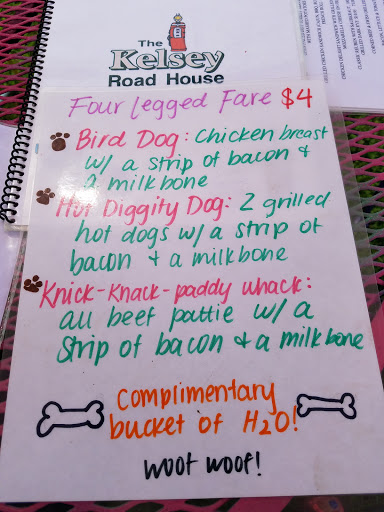 The
Kelsey
Road House
Four Legged Fare $4
Bird Dog: Chicken breast
w/ a strip of bacon &
a milkbone
Hot Diggity Dog: 2 grilled
hot dogs w/ a strip of
bacon & a milkbone
Knick-Knack-paddy whack:
all beef pattie w/ a
strip of bacon & a milkbone
complimentary
bucket of H2O!
woof woof!